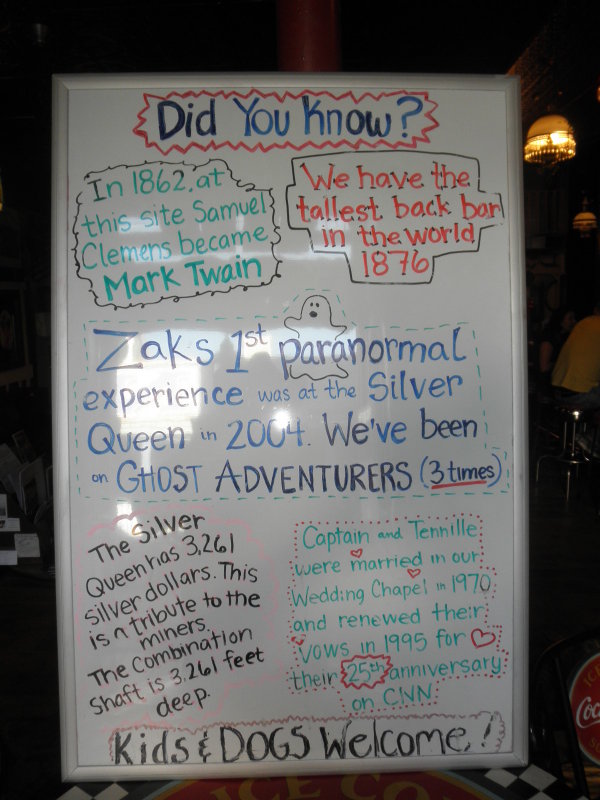 Did You Know?
In 1862, at
this site Samuel
Clemens became
Mark Twain
We have the
tallest back bar
in the world
1876
Zaks 1st paranormal
experience was at the Silver
Queen in 2004. We've been
on GHOST ADVENTURERS (3 times)
The Silver
Queen has 3,261
silver dollars. This
is a tribute to the
miners.
The Combination
Shaft is 3,261 feet
deep.
Captain and Tennille
were married in our
Wedding Chapel in 1970
and renewed their
vows in 1995 for
their 25th anniversary
on CNN
Kids & DOGS Welcome!
ICE CO
ICE
Coc